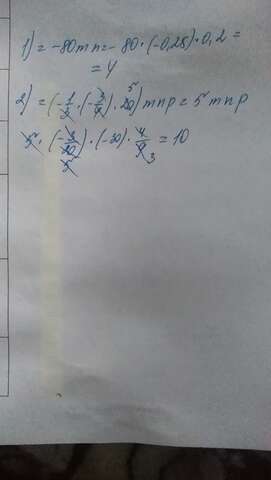 1) = -80mn = -80·(-0,25)·0,2 =
= 4
2) = (-1/2·(-3/4)·20)mnp = 5mnp
5·(-3/20)·(-30)·4/9 = 10